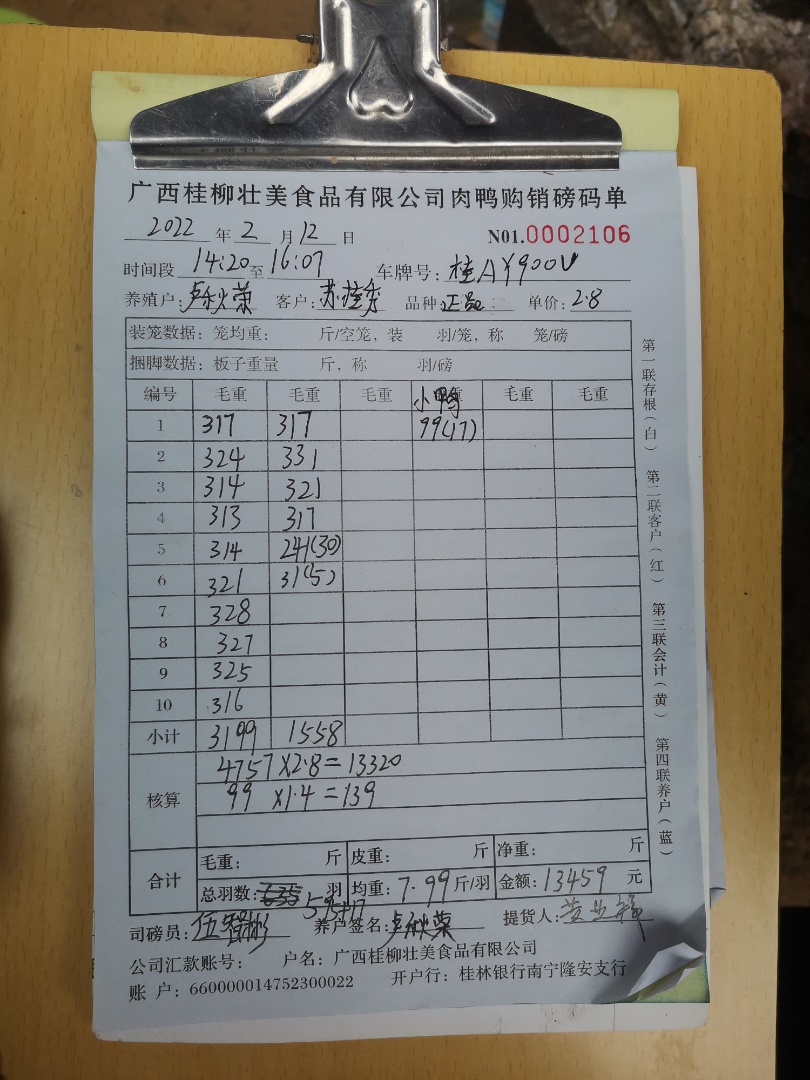 广西桂柳壮美食品有限公司肉鸭购销磅码单
2022 年 2 月 12 日 N01.0002106
时间段 14:20 至 16:07 车牌号: 桂A
养殖户: 客户: 苏桂秀 品种: 正品 单价: 2.8
装笼数据: 笼均重: 斤/空笼, 装 羽/笼, 称 笼/磅
捆脚数据: 板子重量 斤, 称 羽/磅
编号 毛重 毛重 毛重 小鸭 毛重 毛重
1 317 317 99(17)
2 324 331
3 314 321
4 313 317
5 314 241(30)
6 321 31(5)
7 328
8 327
9 325
10 316
小计 3199 1558
核算 4757×2.8=13320
99 ×1.4=139
合计 毛重: 斤 皮重: 斤 净重: 斤
总羽数: 635 羽 均重: 7.99 斤/羽 金额: 13459 元
595+17
司磅员: 伍智彬 养户签名: 提货人:
公司汇款账号: 户名: 广西桂柳壮美食品有限公司
账 户: 660000014752300022 开户行: 桂林银行南宁隆安支行
第一联存根(白) 第二联客户(红) 第三联会计(黄) 第四联养户(蓝)